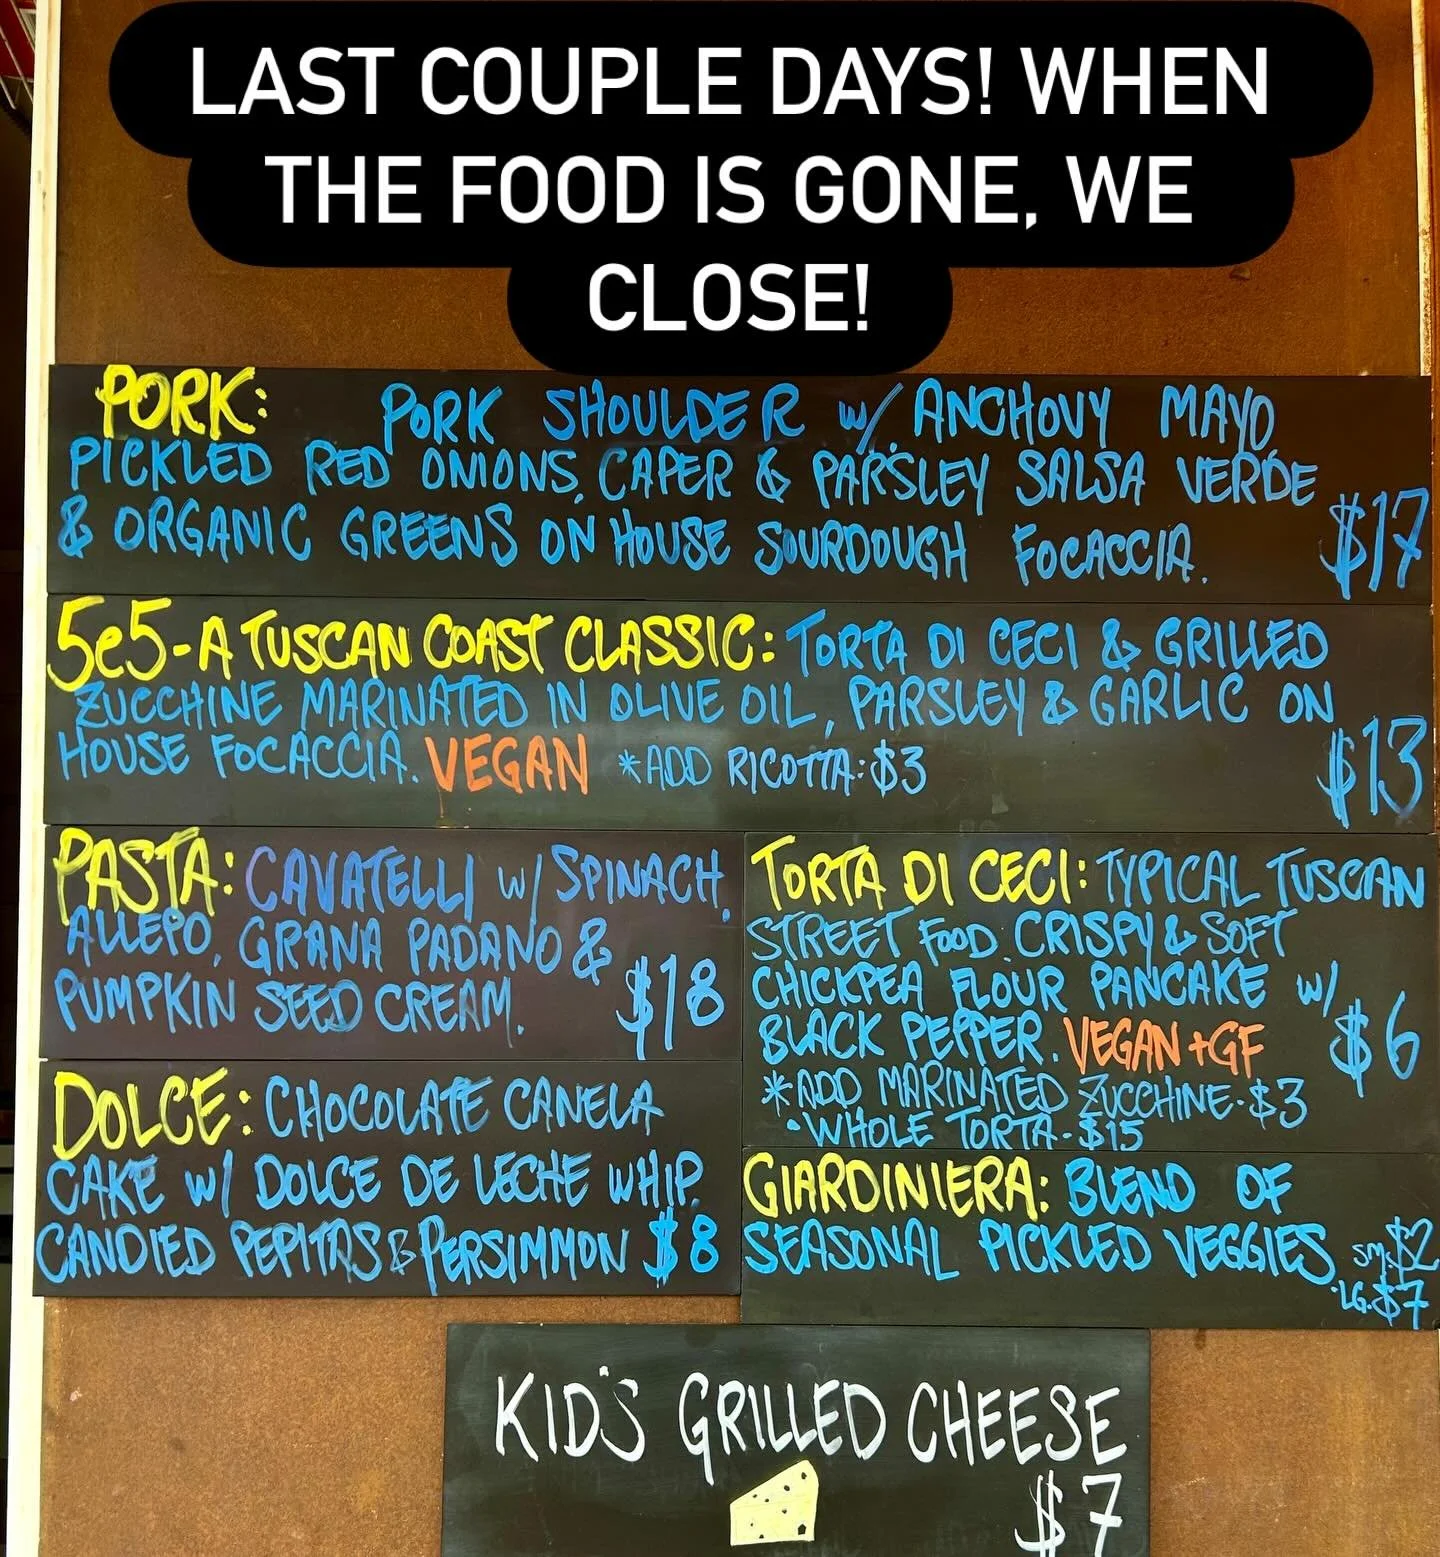 LAST COUPLE DAYS! WHEN
THE FOOD IS GONE, WE
CLOSE!
PORK: PORK SHOULDER w/ ANCHOVY MAYO,
PICKLED RED ONIONS, CAPER & PARSLEY SALSA VERDE
& ORGANIC GREENS ON HOUSE SOURDOUGH FOCACCIA. $17
5e5-A TUSCAN COAST CLASSIC: TORTA DI CECI & GRILLED
ZUCCHINE MARINATED IN OLIVE OIL, PARSLEY & GARLIC ON
HOUSE FOCACCIA. VEGAN *ADD RICOTTA: $3 $13
PASTA: CAVATELLI w/ SPINACH,
ALLEPO, GRANA PADANO &
PUMPKIN SEED CREAM. $18
TORTA DI CECI: TYPICAL TUSCAN
STREET FOOD. CRISPY & SOFT
CHICKPEA FLOUR PANCAKE w/
BLACK PEPPER. VEGAN + GF $6
*ADD MARINATED ZUCCHINE-$3
•WHOLE TORTA-$15
DOLCE: CHOCOLATE CANELA
CAKE w/ DOLCE DE LECHE WHIP,
CANDIED PEPITAS & PERSIMMON $8
GIARDINIERA: BLEND OF
SEASONAL PICKLED VEGGIES. SM.$2
•LG.$7
KID'S GRILLED CHEESE
$7